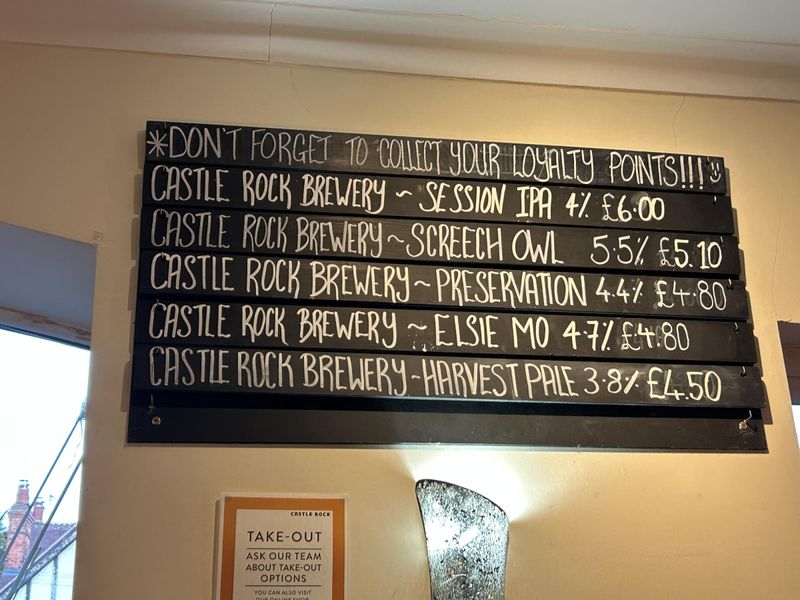 *DON'T FORGET TO COLLECT YOUR LOYALTY POINTS!!!
CASTLE ROCK BREWERY ~ SESSION IPA 4% £6.00
CASTLE ROCK BREWERY ~ SCREECH OWL 5.5% £5.10
CASTLE ROCK BREWERY ~ PRESERVATION 4.4% £4.80
CASTLE ROCK BREWERY ~ ELSIE MO 4.7% £4.80
CASTLE ROCK BREWERY ~ HARVEST PALE 3.8% £4.50
CASTLE ROCK
TAKE-OUT
ASK OUR TEAM
ABOUT TAKE-OUT
OPTIONS
YOU CAN ALSO VISIT
OUR ONLINE SHOP